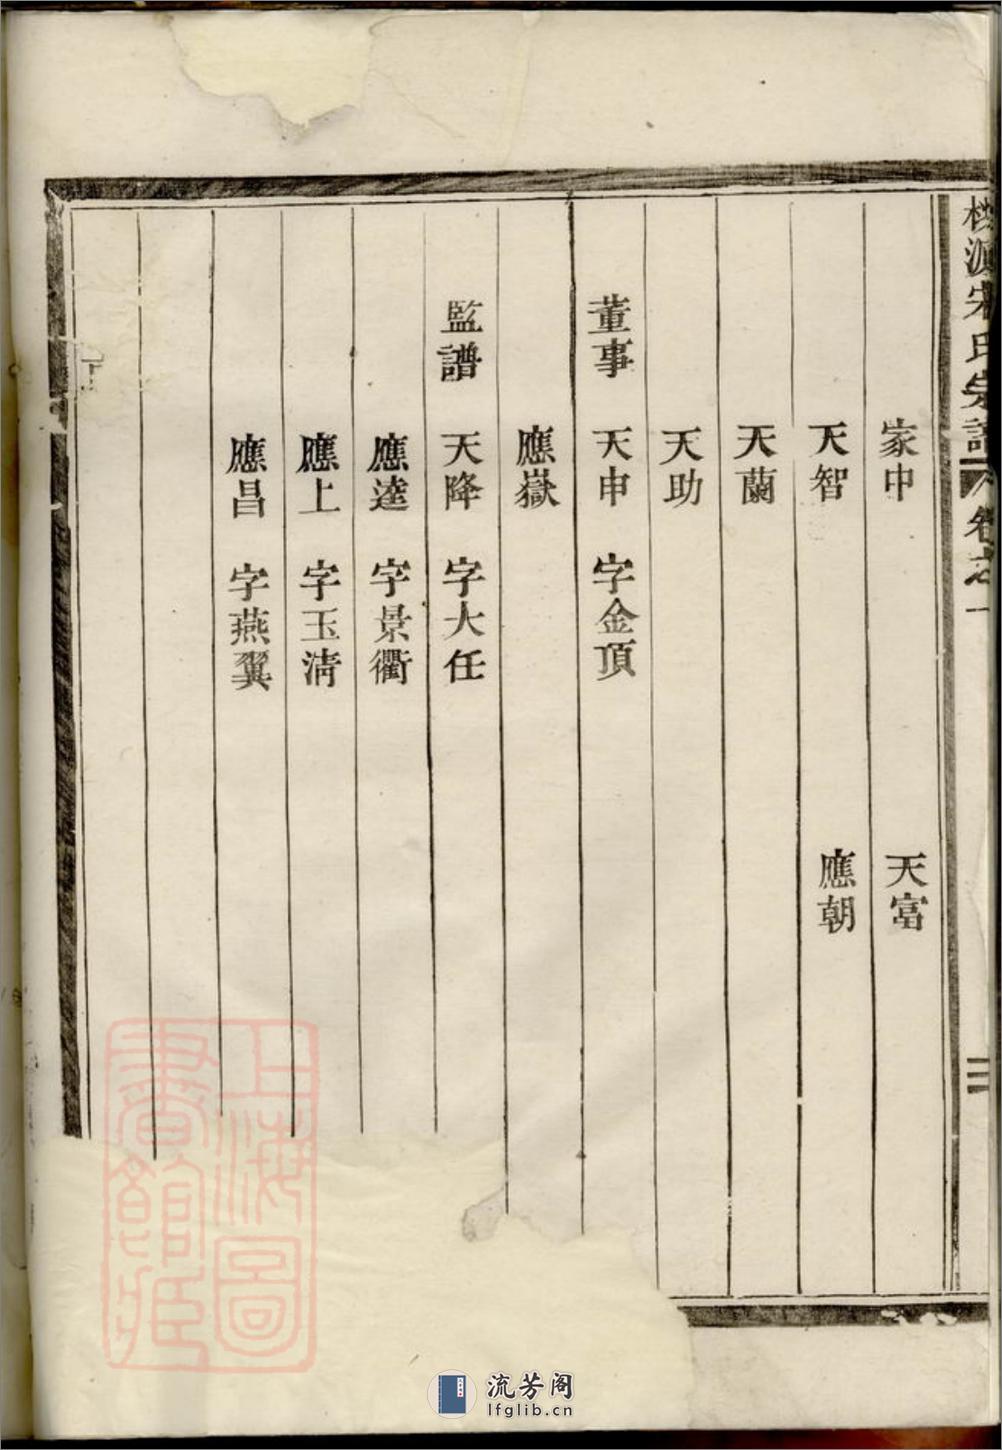 桃源宋氏宗譜 卷之一 三
家中 天富
天智 應朝
天蘭
天助
董事 天申 字金頂
應嶽
監譜 天降 字大任
應逵 字景衢
應上 字玉淸
應昌 字燕翼
上海圖
書館藏
流芳阁
lfglib.cn